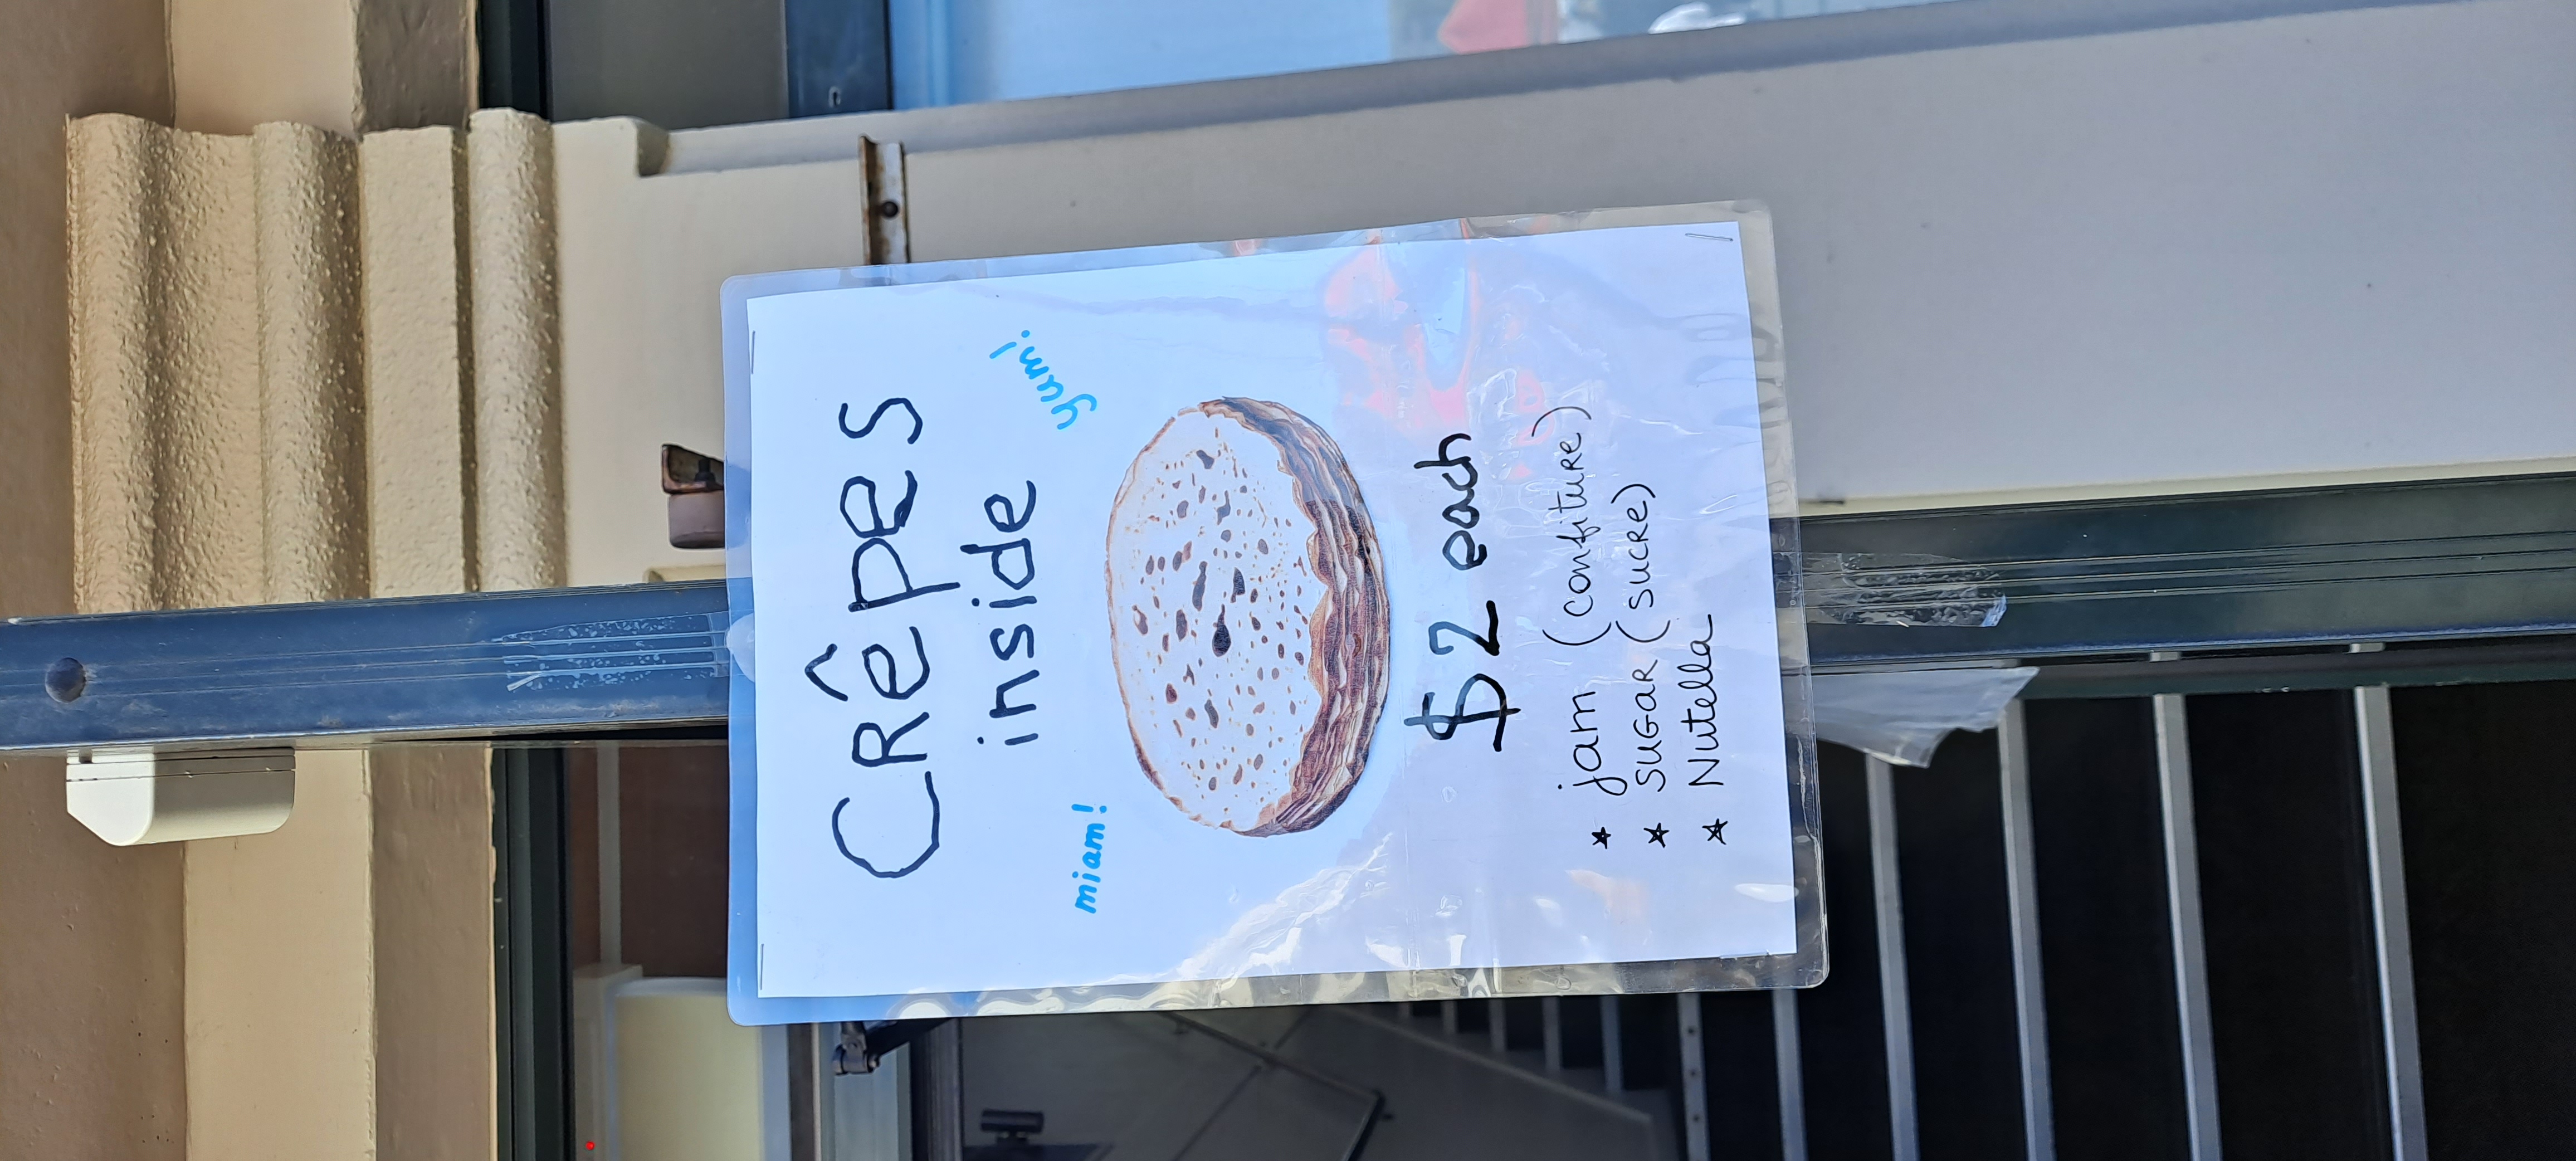 Crêpes
inside
yum!
miam!
$2 each
★ jam (confiture)
★ sugar (sucre)
★ Nutella